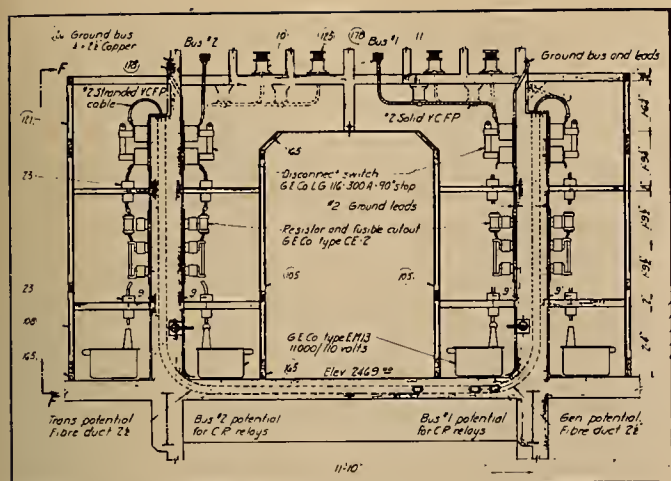 Ground bus
Copper
Bus #2
10
125
178
Bus #1
11
Ground bus and leads
178
#2 Stranded YCFP
cable
#2 Solid YCFP
121
165
23
Disconnect switch
GE Co LG 116-300A-90° stop
#2 Ground leads
Resistor and fusible cutout
GE Co type CE-2
105
105
23
9"
9"
9"
9"
108
GE Co type EM13
11000/110 volts
165
165
Elev 2469.00
F
F
Trans potential
Fibre duct 2½
Bus #2 potential
for CR relays
Bus #1 potential
for CR relays
Gen potential
Fibre duct 2½
11-10"